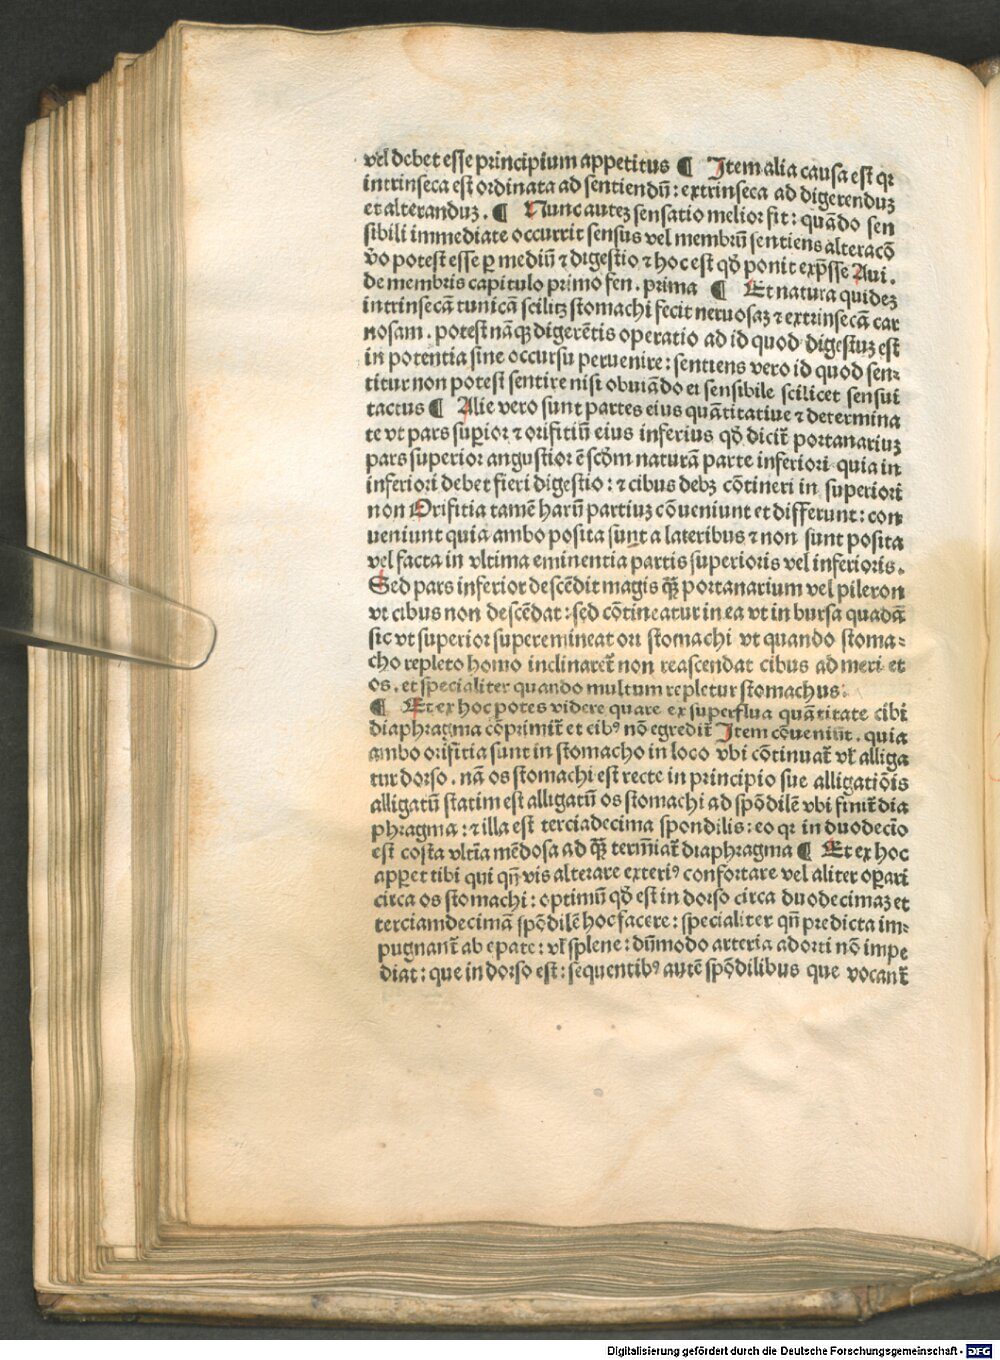 vel debet esse principium appetitus ¶ Item alia causa est qꝛ
intrinseca est ordinata ad sentiendū: extrinseca ad digerenduꝫ
et alteranduꝫ. ¶ Nunc auteꝫ sensatio melior fit: quādo sen
sibili immediate occurrit sensus vel membrū sentiens alteracō
v̄o potest esse ꝑ mediū ⁊ digestio ⁊ hoc est qđ ponit exp̄sse Aui.
de membris capitulo primo fen. prima ¶ Et natura quideꝫ
intrinsecā tunicā scilitꝫ stomachi fecit neruosaꝫ ⁊ extrinsecā car
nosam. potest nāqꝫ digerētis operatio ad id quod digestuꝫ est
in potentia sine occursu peruenire: sentiens vero id quod sen⸗
titur non potest sentire nisi obuiādo ei sensibile scilicet sensui
tactus ¶ Alie vero sunt partes eius quātitatiue ⁊ determina
te vt pars suꝑior ⁊ orifitiū eius inferius qđ dicit᷑ portanariuꝫ
pars superior angustior ē scđm naturā parte inferiori quia in
inferiori debet fieri digestio: ⁊ cibus debꝫ cōtineri in superiori
non Orifitia tamē harū partiuꝫ cōueniunt et differunt: con
ueniunt quia ambo posita sunt a lateribus ⁊ non sunt posita
vel facta in vltima eminentia partis superioris vel inferioris.
Sed pars inferior descēdit magis q̄ꝫ portanarium vel pileron
vt cibus non descēdat: sed cōtineatur in ea vt in bursa quadā
sic vt superior superemineat ori stomachi vt quando stoma⸗
cho repleto homo inclinaret᷑ non reascendat cibus ad meri et
os. et specialiter quando multum repletur stomachus:
¶ Et ex hoc potes videre quare ex superflua quātitate cibi
diaphragma cōprimit᷑ et cibꝰ nō egredit᷑ Item cōueniūt. quia
ambo orifitia sunt in stomacho in loco vbi cōtinuat᷑ vł alliga
tur dorso. nā os stomachi est recte in principio sue alligatiōis
alligatū statim est alligatū os stomachi ad spōdilē vbi finit᷑ dia
phragma: ⁊ illa est terciadecima spondilis: eo qꝛ in duodecīo
est costa vltīa mēdosa ad q̄ꝫ termīat᷑ diaphragma ¶ Et ex hoc
apꝑet tibi qui qn̄ vis alterare exteriꝰ confortare vel aliter oꝑari
circa os stomachi: optimū qđ est in dorso circa duodecimaꝫ et
terciamdecimā spōdilē hoc facere: specialiter qn̄ predicta im⸗
pugnant᷑ ab epate: vł splene: dūmodo arteria adorti nō impe
diat: que in dorso est: sequentibꝰ autē spōdilibus que vocant᷑
Digitalisierung gefördert durch die Deutsche Forschungsgemeinschaft - DFG